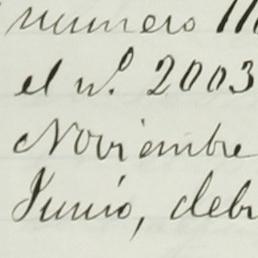 numero
el n.º 2003
Noviembre
Junio, debr